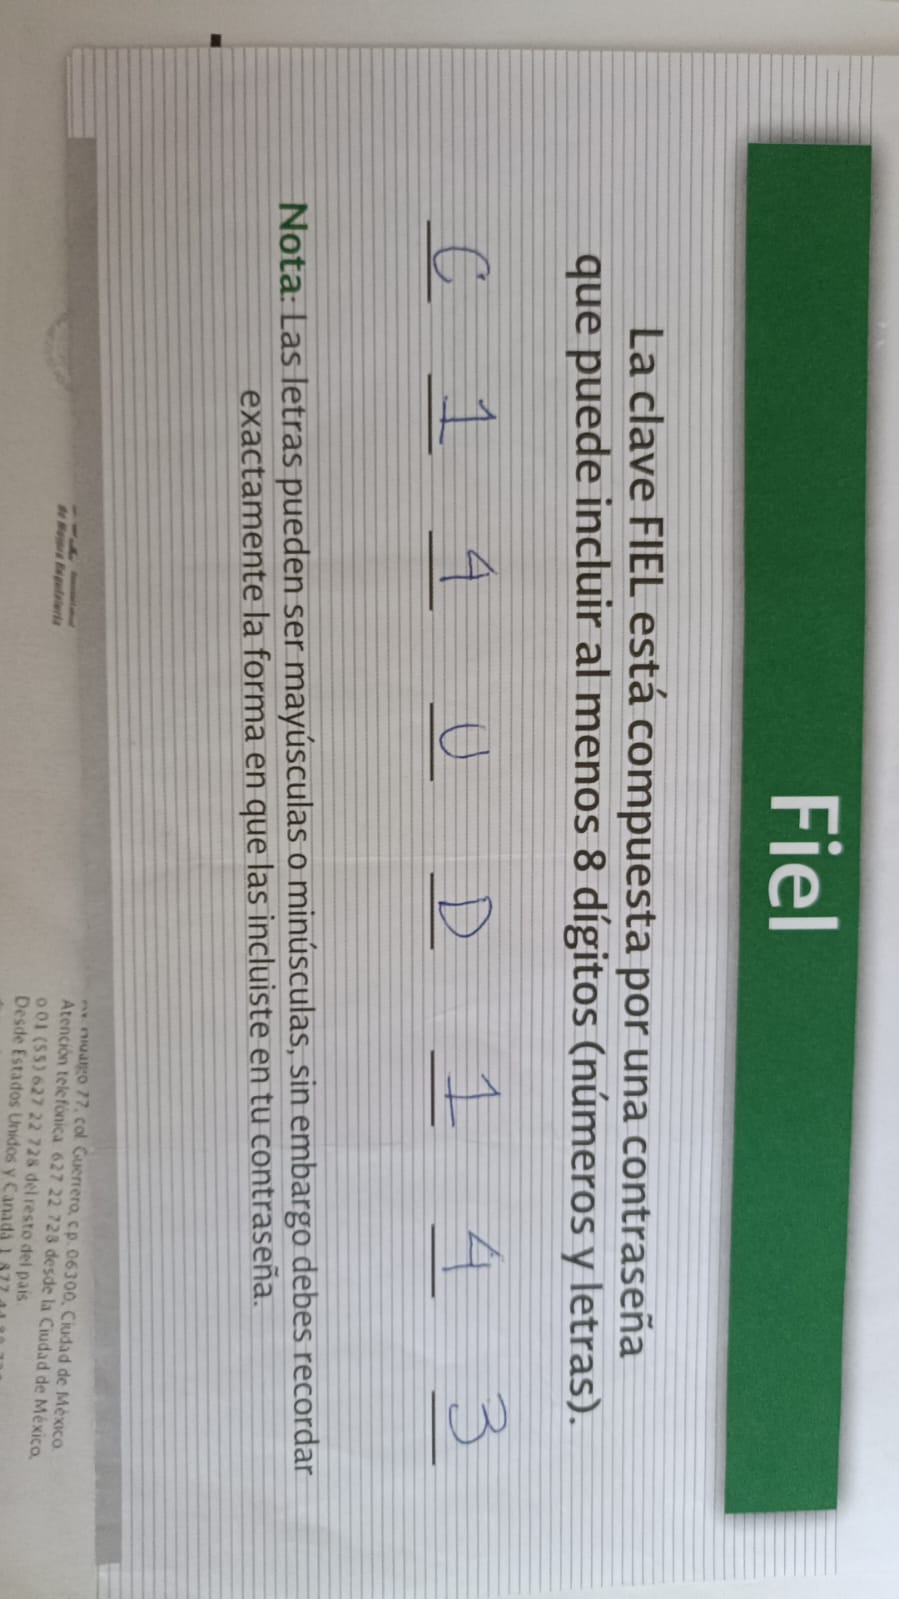 Fiel
La clave FIEL está compuesta por una contraseña
que puede incluir al menos 8 dígitos (números y letras).
C 1 4 U D 1 4 3
Nota: Las letras pueden ser mayúsculas o minúsculas, sin embargo debes recordar
exactamente la forma en que las incluiste en tu contraseña.
77, col. Guerrero, c.p. 06300, Ciudad de México.
Atención telefónica 627 22 728 desde la Ciudad de México,
o 01 (55) 627 22 728 del resto del país.
Desde Estados Unidos y Canadá 1 877